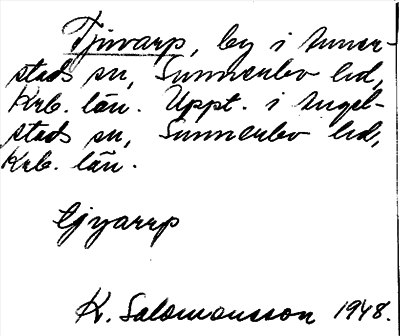 Tjuvarp, by i Anner-
stads sn, Sunnerbo hd,
Krb. län. Uppt. i Angel-
stads sn, Sunnerbo hd,
Krb. län.
K. Salomonsson 1948.